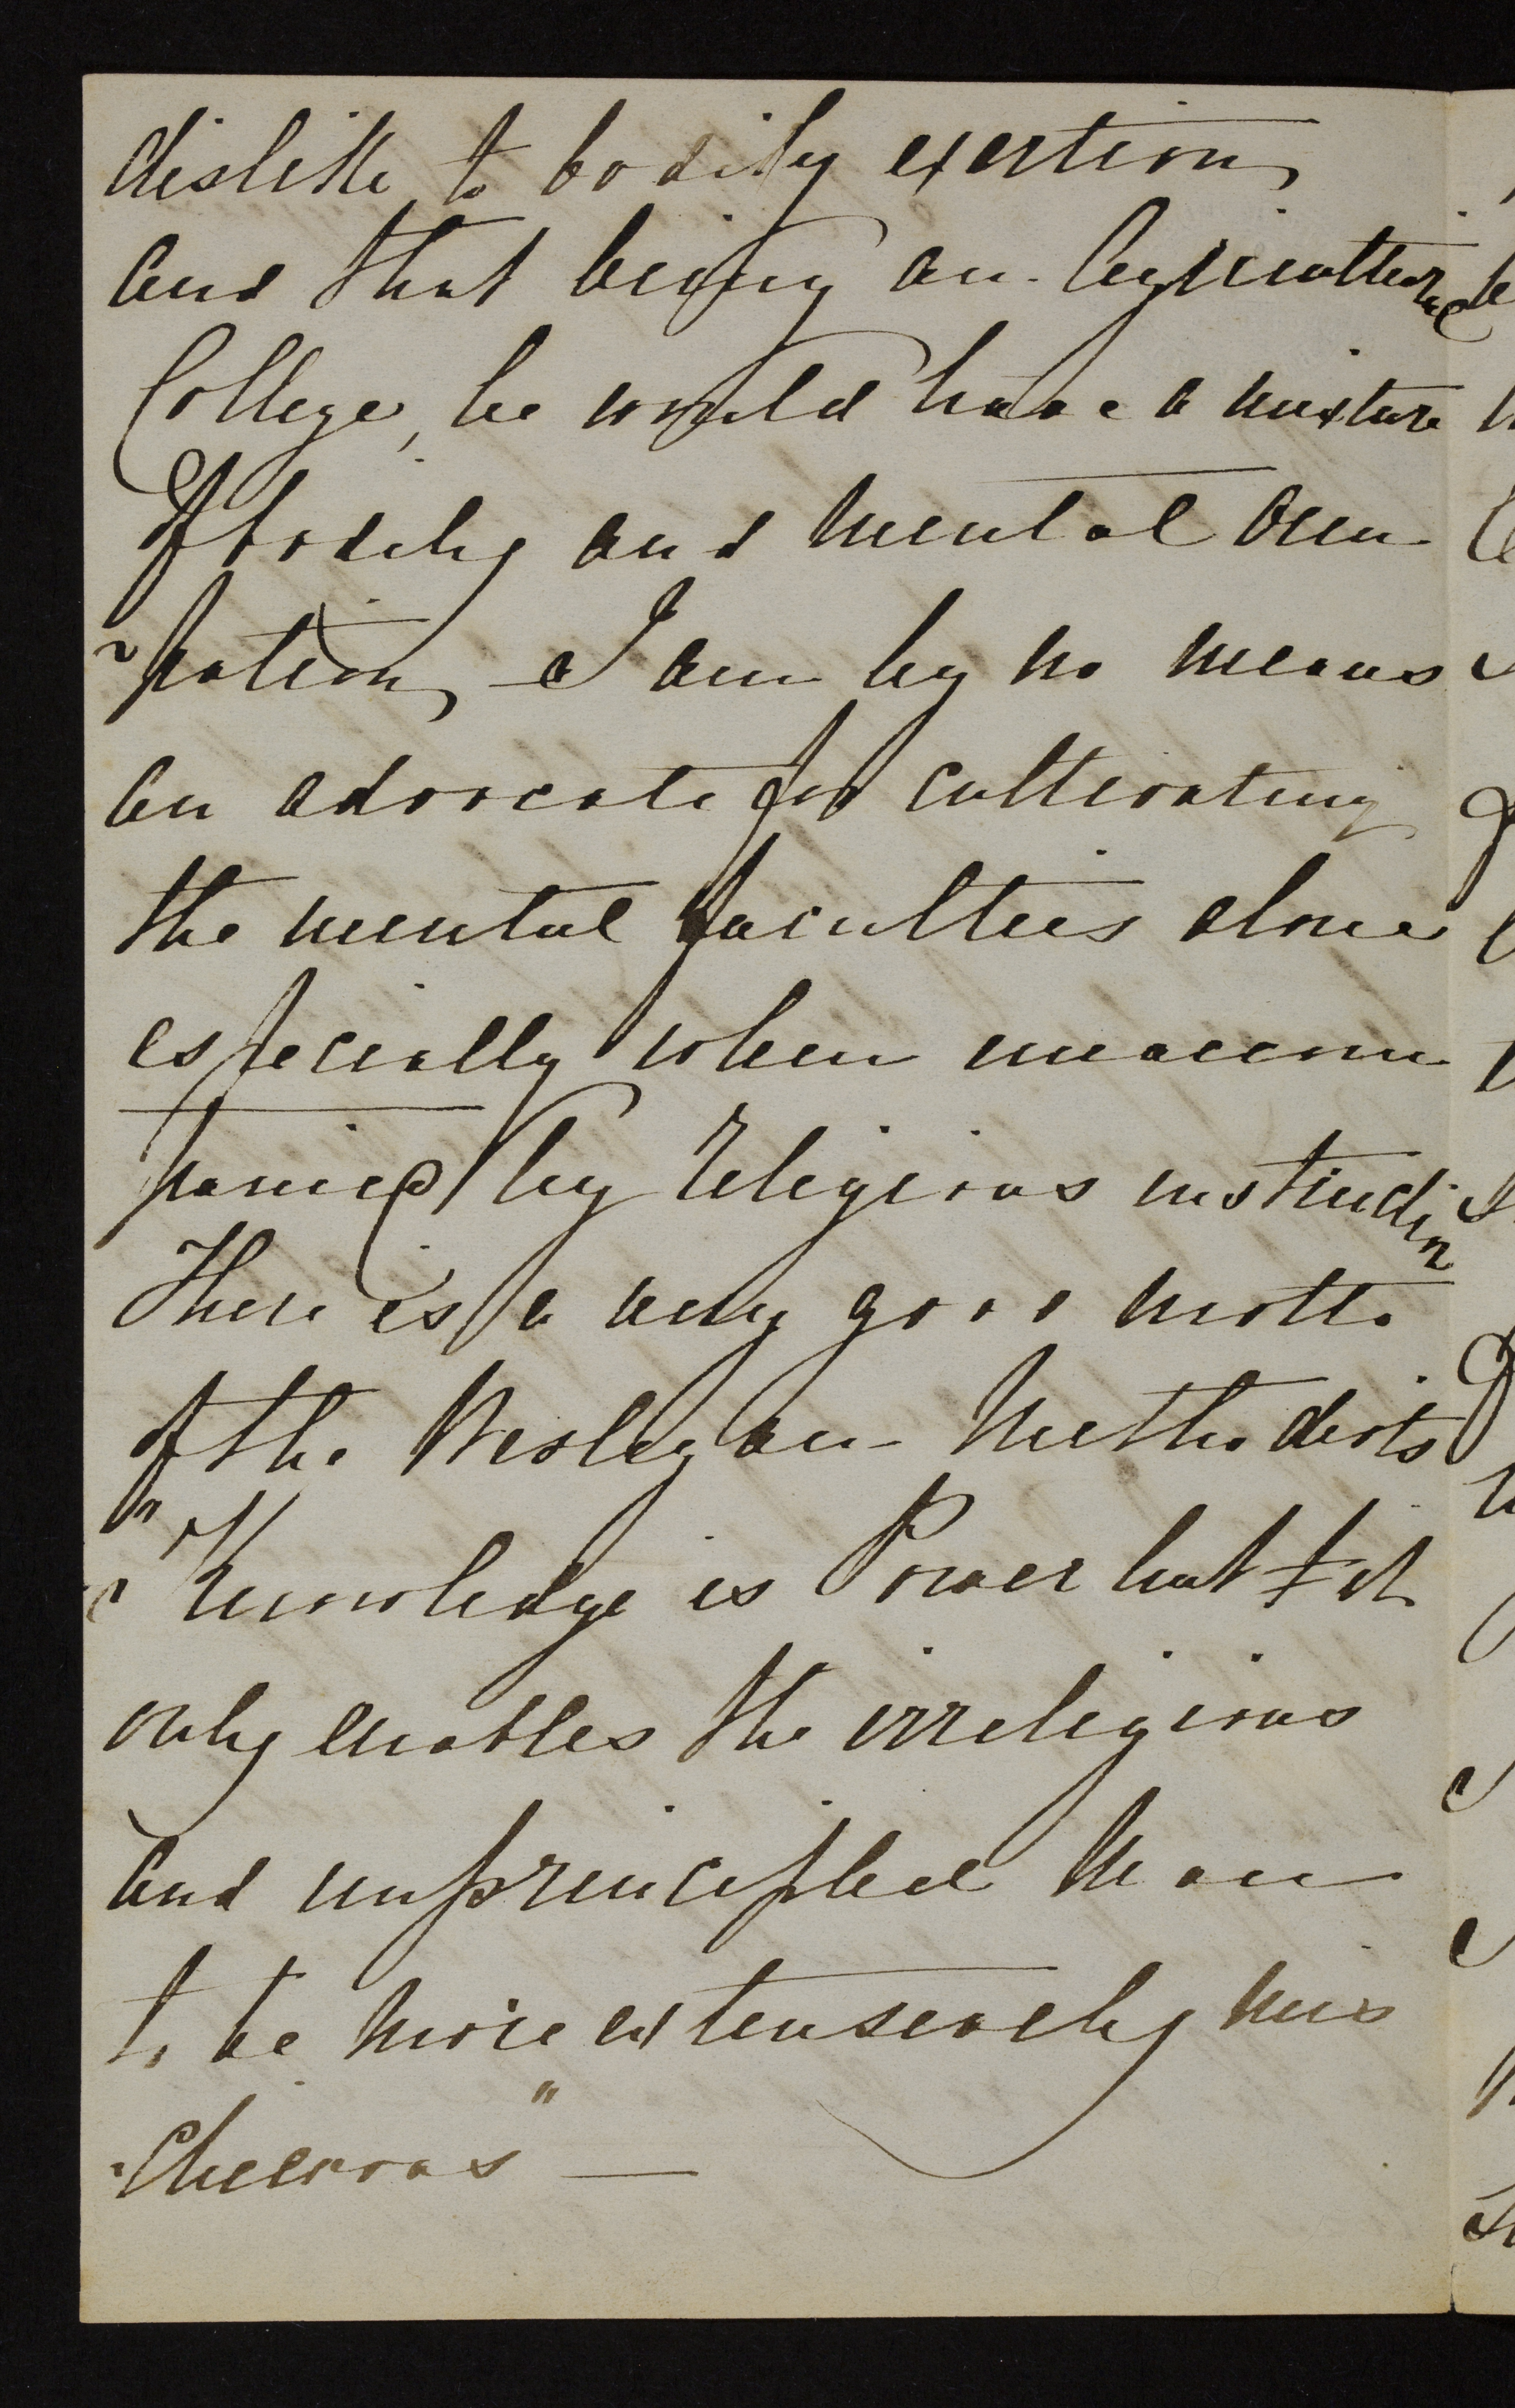 dislike to bodily exertion,
and that being an Agricultural
College, he would have a mixture
of bodily and mental occu
-pation, I am by no means
an advocate for cultivating
the mental faculties alone
especially when unaccom
panied by religious instruction
There is a very good motto
of the Wesleyan Methodists
" Knowledge is Power but it
only enables the irreligious
and unprincipled man
to be more extensively mis
-chievous" —